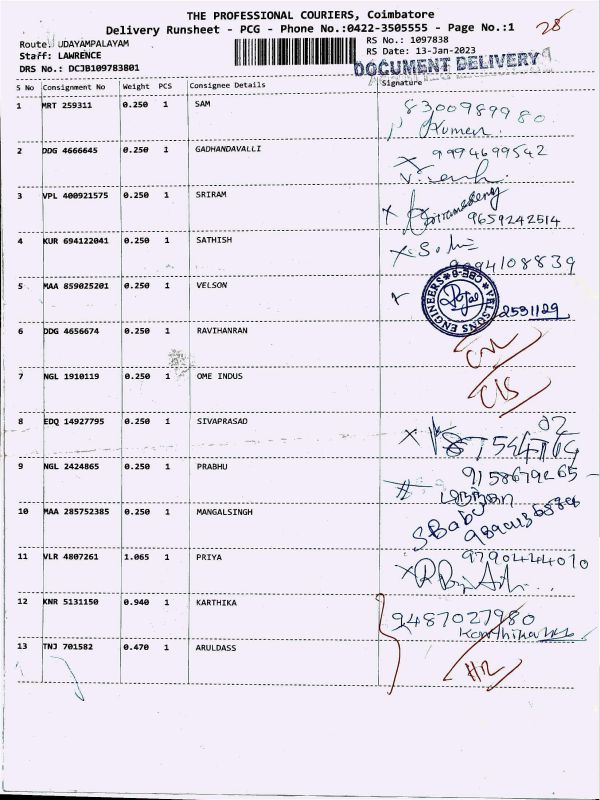 THE PROFESSIONAL COURIERS, Coimbatore
Delivery Runsheet - PCG - Phone No.:0422-3505555 - Page No.:1
28
Route: UDAYAMPALAYAM
RS No.: 1097838
Staff: LAWRENCE
RS Date: 13-Jan-2023
DRS No.: DCJB109783801
DOCUMENT DELIVERY
S No Consignment No Weight PCS Consignee Details Signature
1 MRT 259311 0.250 1 SAM
8300989980
Kumar
2 DDG 4666645 0.250 1 GADHANDAVALLI
9994699542
3 VPL 400921575 0.250 1 SRIRAM
9659242514
4 KUR 694122041 0.250 1 SATHISH
9094108839
5 MAA 859025201 1 0.250 VELSON
VELSONS ENGINEERS CBE-6
2531129
6 DDG 4656674 0.250 1 RAVIHANRAN
7 NGL 1910119 0.250 1 OME INDUS
8 EDQ 14927795 0.250 1 SIVAPRASAD
9 NGL 2424865 0.250 1 PRABHU
9158679265
10 MAA 285752385 0.250 1 MANGALSINGH
SBabu
11 VLR 4807261 1.065 1 PRIYA
9790444010
12 KNR 5131150 0.940 1 KARTHIKA
9487027980
Karthika
13 TNJ 701582 0.470 1 ARULDASS